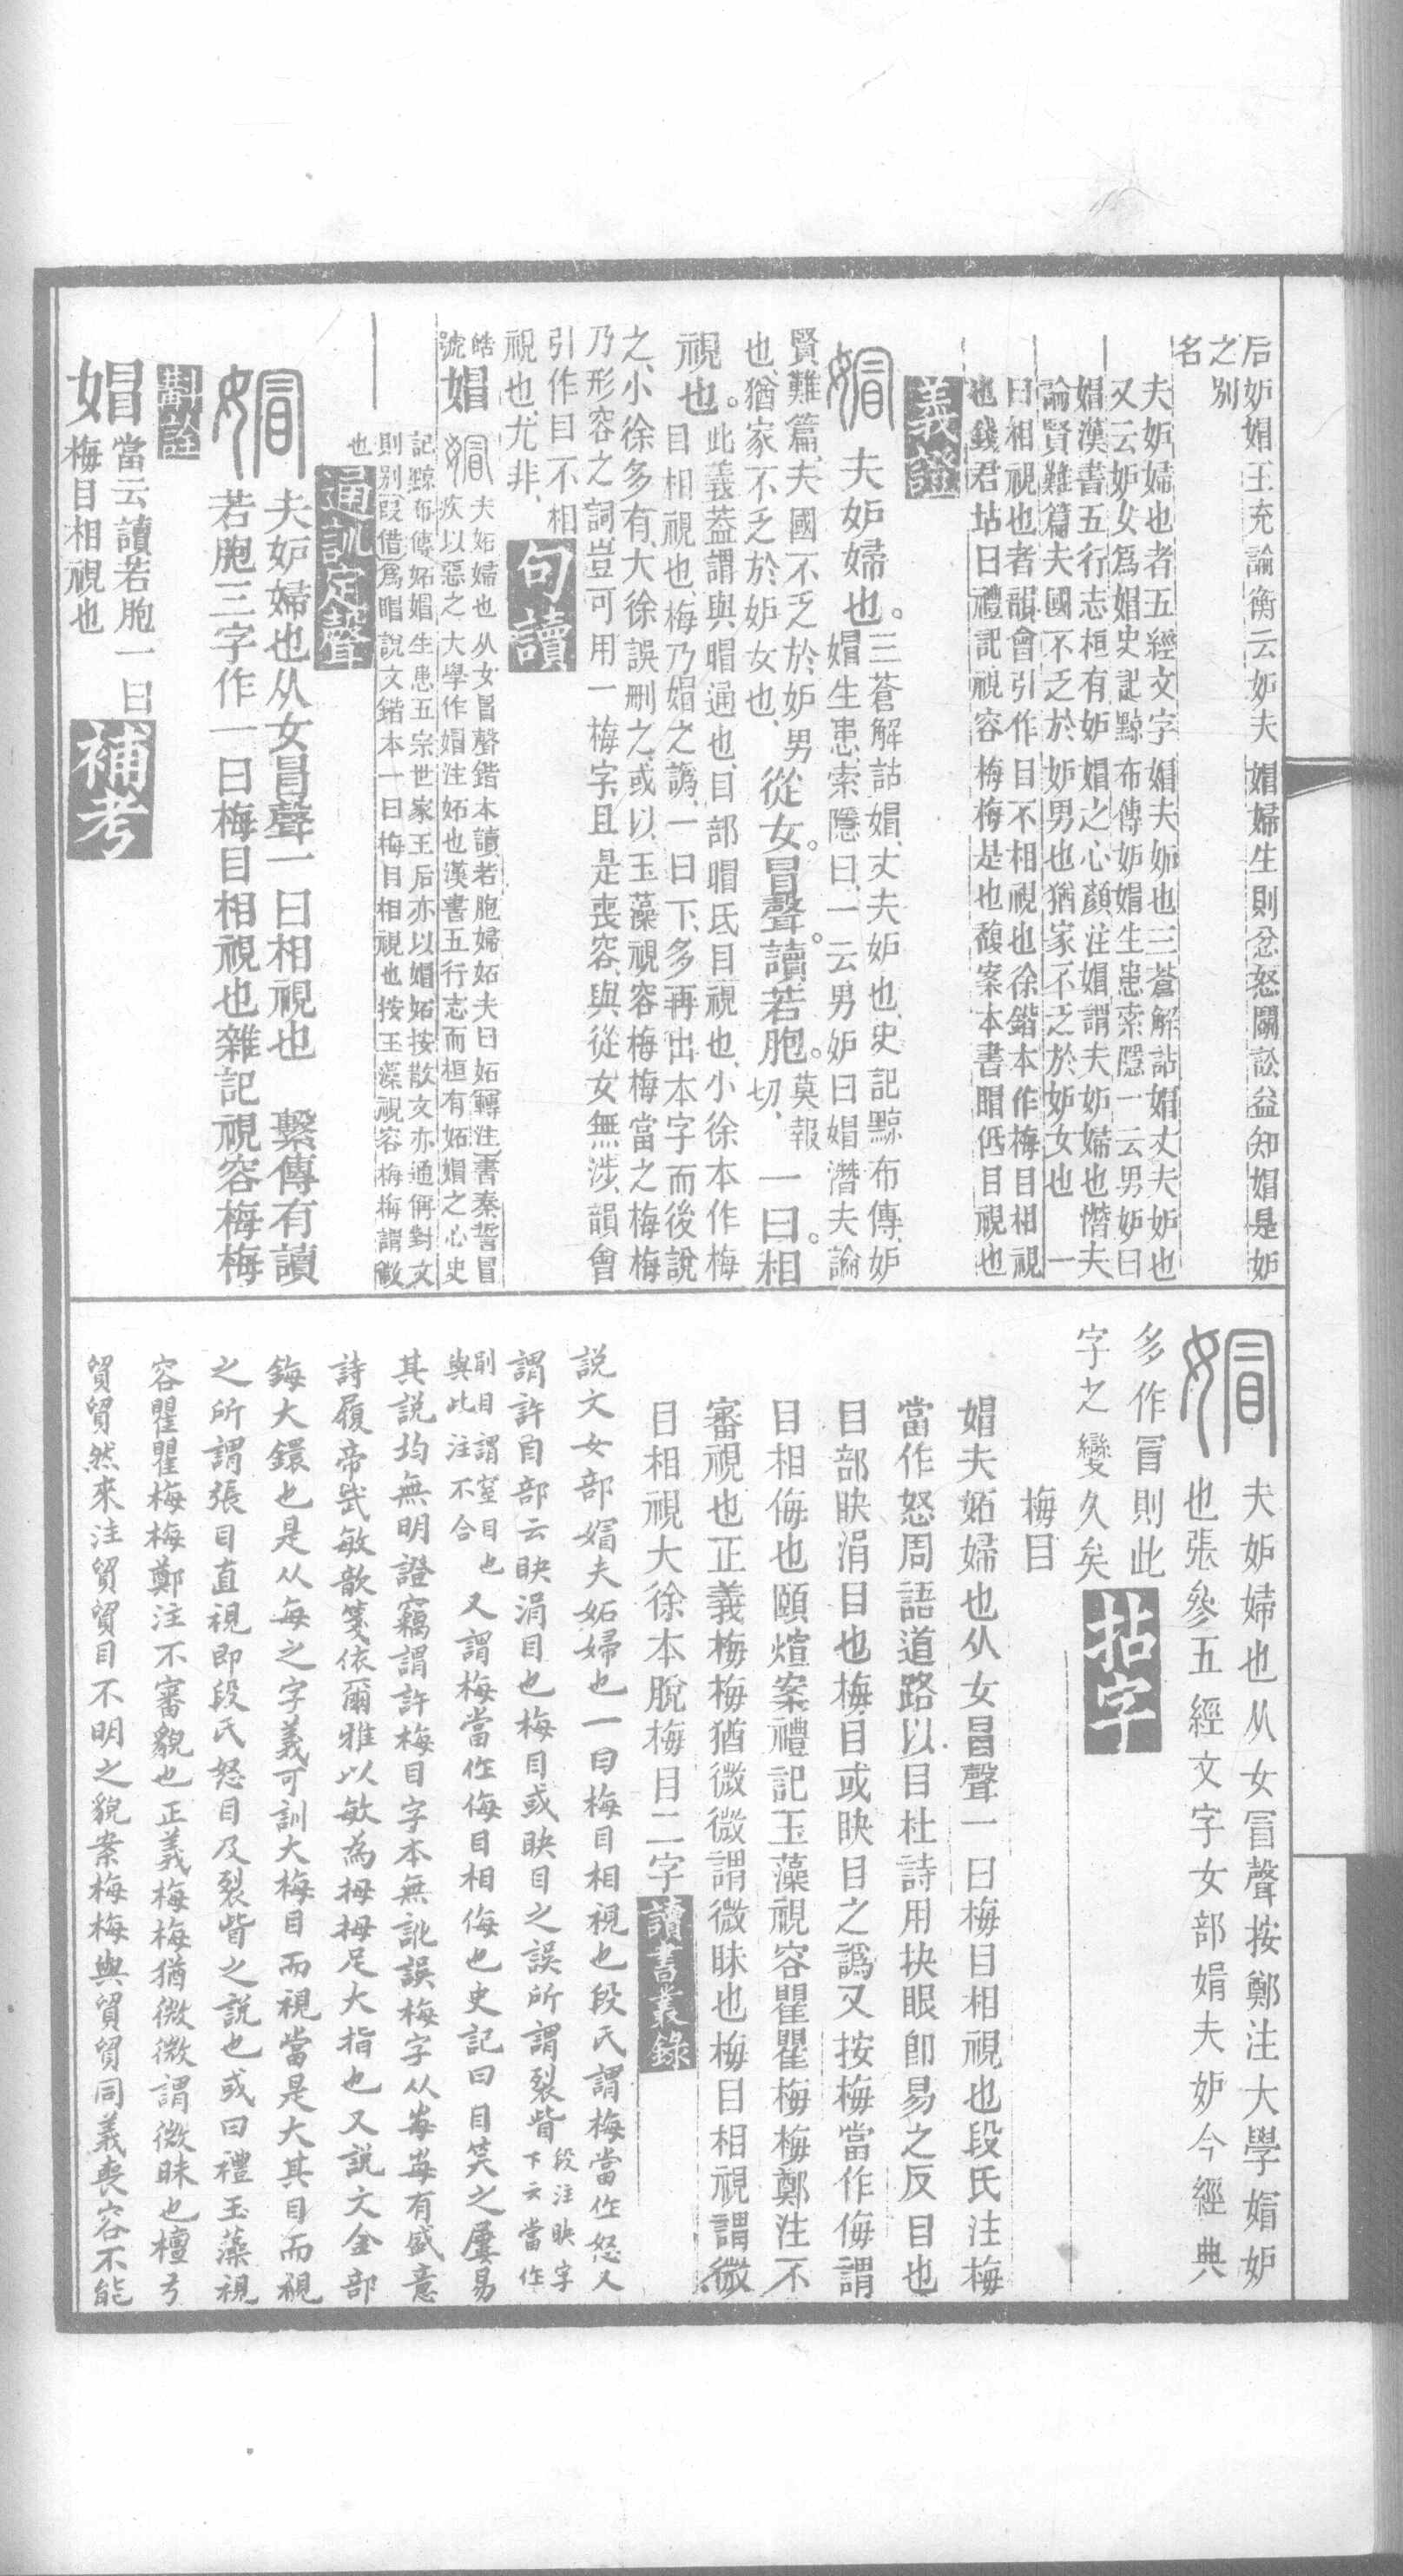 后妒媢王充論衡云妒夫媢婦生則忿怒鬭訟益知媢是妒
之別
名
夫妒婦也者五經文字媢夫妒也三蒼解詁媢丈夫妒也
又云妒女爲媢史記黥布傳妒媢生患索隱一云男妒曰
媢漢書五行志桓有妒媢之心顏注媢謂夫妒婦也憯夫
論賢難篇夫國不乏於妒男也猶家不乏於妒女也 一
曰相視也者韻會引作目不相視也徐鍇本作梅目相視
也錢君坫曰禮記視容梅梅是也馥案本書䀤低目視也
義證
媢夫妒婦也。三蒼解詁媢、丈夫妒也、史記黥布傳、妒
媢生患、索隱曰、一云男妒曰媢潛夫論
賢難篇、夫國不乏於妒男
也、猶家不乏於妒女也、從女。冒聲。讀若胞。莫報切、一曰。相
視也。此義葢謂與䀤通也、目部䀤氏目視也、小徐本作梅
目相視也、梅乃媢之譌、一曰下、多再出本字而後說
之、小徐多有、大徐誤刪之、或以玉藻視容梅梅當之、梅梅
乃形容之詞、豈可用一梅字、且是喪容、與從女無涉、韻會
引作目不相
視也、尤非、
句讀
皓
號
媢媢夫妬婦也从女冒聲鍇本讀若胞婦妬夫曰妬轉注書秦誓冒
疾以惡之大學作媢注妬也漢書五行志而桓有妬媢之心史
記黥布傳妬媢生患五宗世家王后亦以媢妬按散文亦通偁對文
則别叚借爲䀤說文鍇本一曰梅目相視也按玉藻視容梅梅謂微
也
通訓定聲
媢夫妒婦也从女冒聲一曰相視也 繫傳有讀
若胞三字作一曰梅目相視也雜記視容梅梅
斠詮
媢當云讀若胞一曰
梅目相視也
補考
媢夫妒婦也从女冒聲按鄭注大學媢妒
也張參五經文字女部媢夫妒今經典
多作冒則此
字之變久矣
拈字
梅目
媢夫妬婦也从女冒聲一曰梅目相視也段氏注梅
當作怒周語道路以目杜詩用抉眼卽易之反目也
目部䀗涓目也梅目或䀗目之譌又按梅當作侮謂
目相侮也頤煊案禮記玉藻視容瞿瞿梅梅鄭注不
審視也正義梅梅猶微微謂微昧也梅目相視謂微
目相視大徐本脫梅目二字
讀書叢錄
説文女部媢夫妬婦也一曰梅目相視也段氏謂梅當作怒又
謂許目部云䀗涓目也梅目或䀗目之誤所謂裂眥段注䀗字下云當作
剈目謂窐目也與此注不合又謂梅當作侮目相侮也史記曰目笑之屢易
其説均無明證竊謂許梅目字本無訛誤梅字从每每有盛意
詩履帝武敏歆箋依爾雅以敏為拇拇足大指也又説文金部
鋂大鐶也是从每之字義可訓大梅目而視當是大其目而視
之所謂張目直視即段氏怒目及裂眥之説也或曰禮玉藻視
容瞿瞿梅梅鄭注不審貌也正義梅梅猶微微謂微昧也檀弓
貿貿然來注貿貿目不明之貌案梅梅與貿貿同義喪容不能